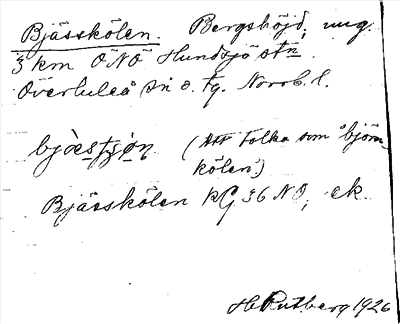 Bjässkölen. Bergshöjd, ung.
3 km ÖNÖ Hundsjö stn.
Överluleå sn o. tg. Norrb. l.
(Att tolka som "björn-
kölen".)
Bjässkölen kG 36 NO, ek.
H. Rutberg 1926